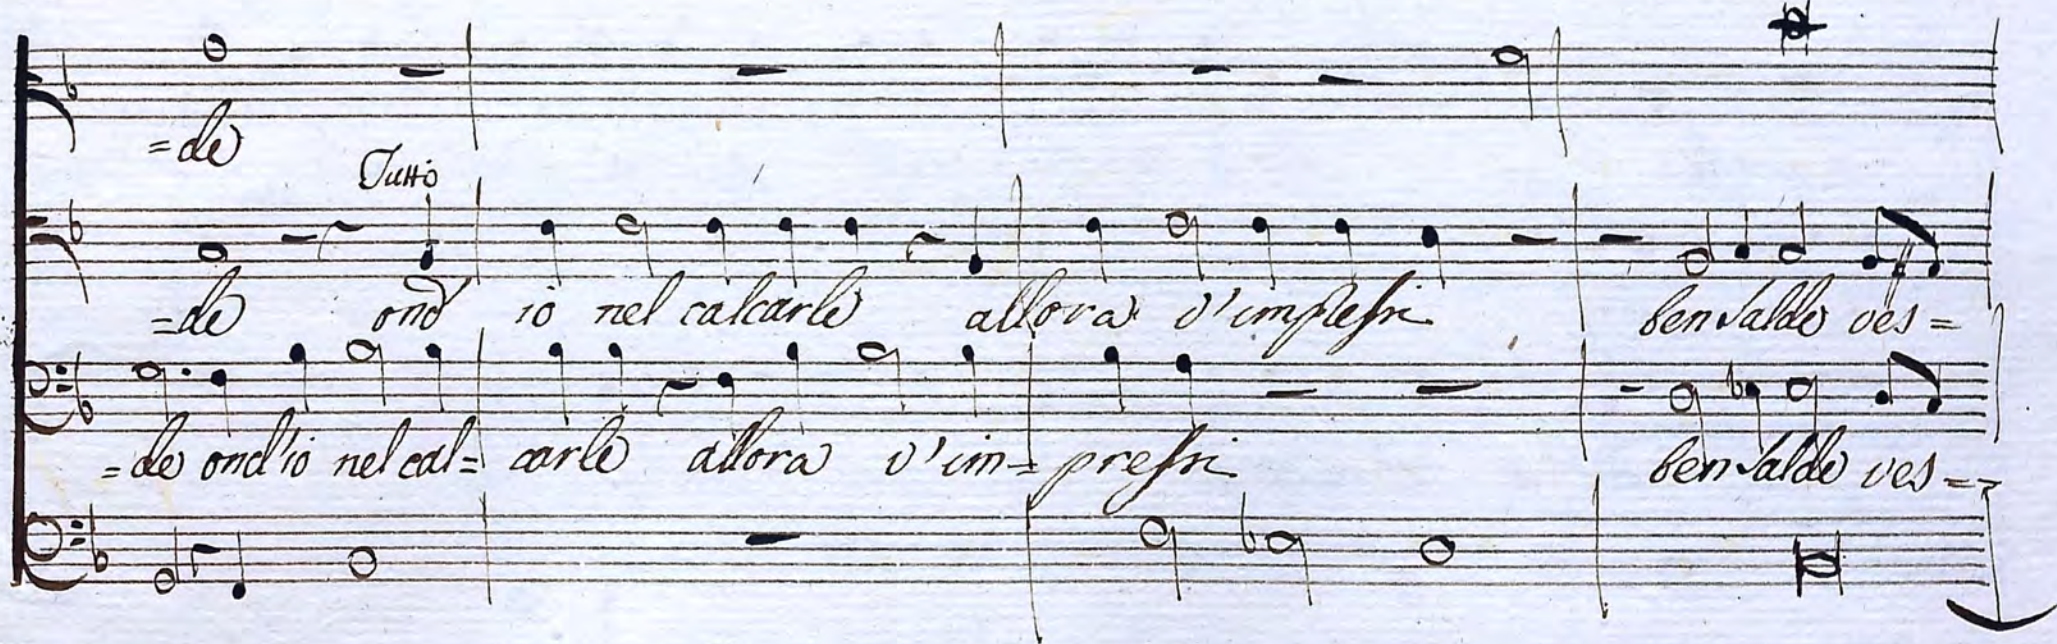 =de
Tutto
=de ond' io nel calcarle allora v'impressi ben salde ves=
=de ond'io nel cal= carle allora v'im= pressi ben salde ves=